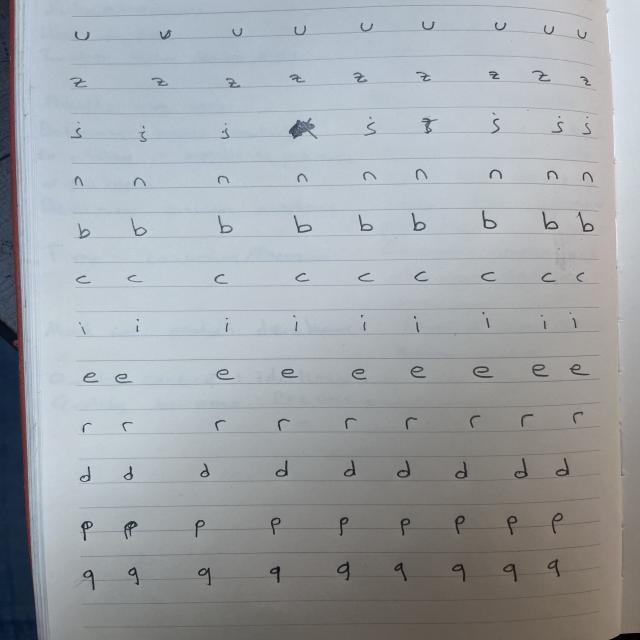 u u u u u u u u u
z z z z z z z z z
ṡ ṡ ṡ ṡ ṡ ṡ ṡ
n n n n n n n n n
b b b b b b b b b
c c c c c c c c c
i i i i i i i i i
e e e e e e e e e
r r r r r r r r r
d d d d d d d d d
p p p p p p p p p
q q q q q q q q q